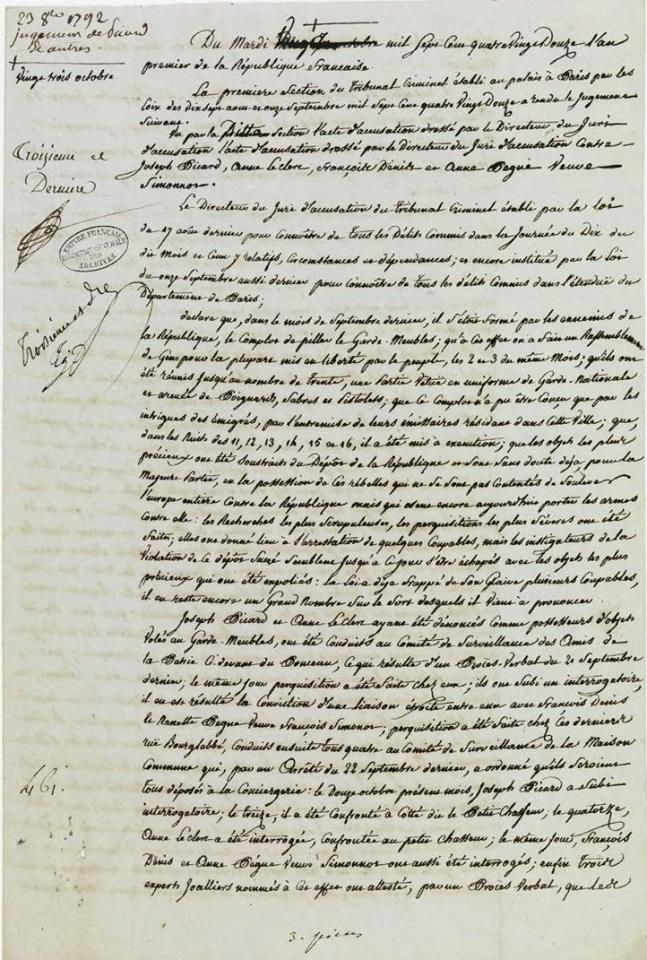 23 8bre 1792
jugement de Picard
& autres.
Vingt trois octobre
Du Mardi octobre mil Sept Cent quatre Vingt Douze L'an
premier de la République française
La premiere Section du Tribunal Criminel établi au palais à Paris par les
Loix des dix sept aout et onze Septembre mil Sept Cent quatre Vingt Douze a rendu le Jugement
Suivant.
Vu par la Section l'acte d'accusation dressé par le Directeur du Juri
d'accusation l'acte d'accusation dressé par le Directeur du Juré d'accusation Contre
Joseph Picard, Anne Leclerc, Françoise Denis et Anne Begue Veuve
Simonnot.
Troisieme et
Derniere
Le Directeur du Juré d'accusation du Tribunal Criminel établi par la loi
du 17 aout dernier pour Connoitre de tous les Délits Commis dans la Journée du Dix du
dit Mois et Ceux y relatifs, Circonstances et dépendances; et encore institué par la Loi
du onze Septembre aussi dernier pour Connoitre de tous les délits Commis dans l'étendue du
Département de Paris;
EMPIRE FRANÇAIS
ARCHIVES
Troisieme et dre
declare que, dans le mois de Septembre dernier, il s'étoit formé par les ennemis de
la République, le Complot de piller le Garde-Meubles; qu'à Cet effet on a Saisi un Rassemblement
de Gens pour la plupart mis en liberté par le peuple, les 2 et 3 du même Mois; qu'ils ont
été réunis Jusqu'au nombre de Trente, une Partie Vetue en uniforme de Garde-Nationale
et armée de Poignards, Sabres et Pistolets; que Ce Complot n'a pu être Conçu que par les
intrigues des émigrés, par l'entremise de leurs émissaires résidans dans Cette Ville; que,
dans les Nuits des 11, 12, 13, 14, 15 et 16, il a été mis à execution; que les objets les plus
précieux ont été Soustraits du Dépôt de la République et Sont Sans doute déja, pour la
Majeure Partie, en la possession de Ces rébelles qui ne Se Sont pas Contentés de Soulever
l'europe entiere Contre la République mais qui osent encore aujourd'hui porter les armes
Contre elle: les Recherches les plus Scrupuleuses, les perquisitions les plus Séveres ont été
faites; elles ont donné lieu à l'arrestation de quelques Coupables, mais les instigateurs de la
Violation de Ce dépôt Sacré Semblent Jusqu'à Ce Jour s'être échapés avec les objets les plus
précieux qui ont été enpoliés: la Loi a déja frappé de Son Glaive plusieurs Coupables,
il en reste encore un Grand Nombre Sur le Sort desquels il Vient à prononcer.
Joseph Picard et Anne Leclerc ayant été dénoncés Comme possesseurs d'objets
Volés au Garde-Meubles, ont été Conduits au Comité de Surveillance des Amis de
la Patrie Ci devant du Ponceau, Ce qui résulte d'un Procès-Verbal du 21 Septembre
dernier; le même Jour perquisition a été Faite chez eux; ils ont Subi un interrogatoire,
il en est résulté la Conviction d'une liaison étroite entre eux avec François Denis
le Nanette Begue Veuve François Simonnot; perquisition a été Faite chez Ces derniers
rue Bourglabbé, Conduits ensuite tous quatre au Comité de Surveillance de la Maison
Commune qui, par un Arrêté du 22 Septembre dernier, a ordonné qu'ils Seroient
tous déposés à la Conciergerie: le Douze octobre présent mois, Joseph Picard a Subi
interrogatoire; le Treize, il a été Confronté à Cotté dit le Petit Chasseur; le quatorze,
Anne Leclerc a été interrogée, Confrontée au petit Chasseur; le même Jour, François
Denis et Anne Bégue Veuve Simonnot ont aussi été interrogés; enfin Trois
experts Joailliers nommés à Cet effet ont attesté, par un Procès Verbal, que
461.
3. pieces